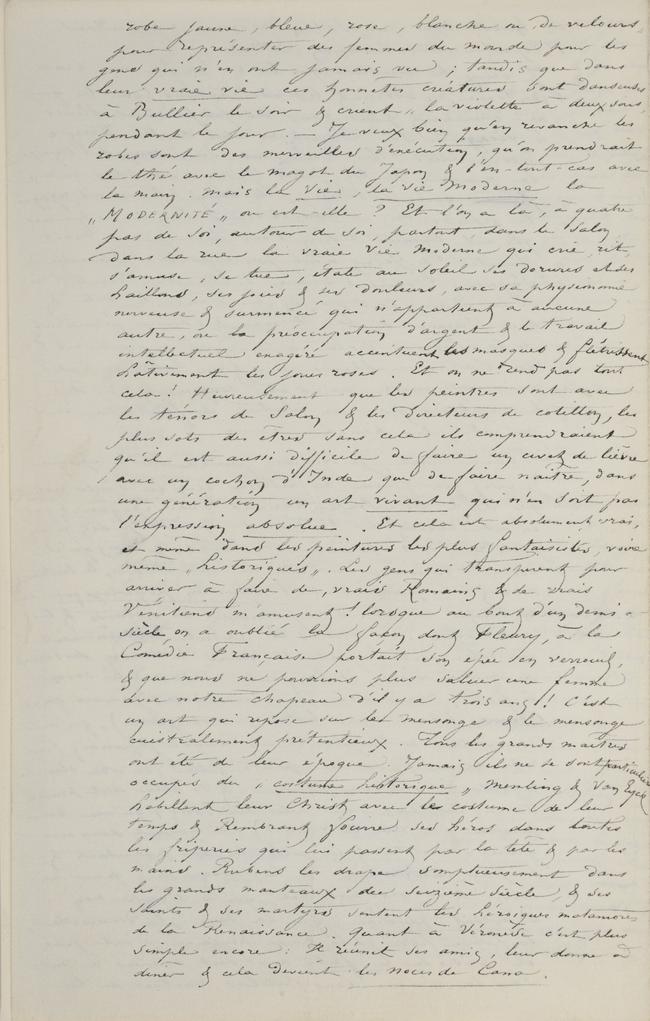 robe jaune, bleue, rose, blanche ou de velours,
pour représenter des femmes du monde pour les
gens qui n'en ont jamais vu ; tandis que dans
leur vraie vie ces honnêtes créatures sont danseuses
à Bullier le soir & crient „ la violette à deux sous,
pendant le jour. — Je veux bien qu'en revanche les
robes sont des merveilles d'exécution, qu'on prendrait
le thé avec le magot du Japon & l'en-tout-cas avec
la main. mais la Vie, la vie Moderne la
„ MODERNITÉ „ ou est-elle ? Et l'on a là, à quatre
pas de soi, autour de soi, partout, dans le salon
dans la rue la vraie vie moderne qui crie, rit,
s'amuse, se tue, étale au soleil ses dorures et des
haillons, ses joies & ses douleurs, avec sa physionomie
nerveuse & surmenée qui n'appartient à aucune
autre, ou la préoccupation d'argent & le travail
intellectuel exagéré accentuent les masques & flétrissent
hâtivement les joues roses. Et on ne rend pas tout
cela ! Heureusement que les peintres sont avec
les ténors de Salon & les directeurs de cotillon, les
plus sots des êtres sans cela ils comprendraient
qu'il est aussi difficile de faire un civet de lièvre
avec un cochon d'Inde que de faire naître, dans
une génération un art vivant qui n'en soit pas
l'expression absolue. Et cela est absolument vrai,
et même dans les peintures les plus fantaisistes, voire
même „ historiques „. Les gens qui transpirent pour
arriver à faire de vrais Romains & de vrais
Vénitiens m'amusent ! lorsque au bout d'un demi-
siècle on a oublié la façon dont Fleury, à la
Comédie Française portait son épée en verrouil,
& que nous ne pourrions plus saluer une femme
avec notre chapeau d'il y a trois ans ! C'est
un art qui repose sur le mensonge & le mensonge
cuistralement prétentieux. Tous les grands maitres
ont été de leur époque. Jamais ils ne se sont particulièr
occupés du „ costume historique „ Memling & Van Eyck
habillent leur Christ avec le costume de leur
temps & Rembrant fourre ses héros dans toutes
les friperies qui lui passent par la tête & par les
mains. Rubens les drape somptueusement dans
les grands manteaux du seizième siècle, & ses
saints & ses martyrs sentent les héroïques matamores
de la Renaissance. Quant à Véronèse c'est plus
simple encore : Il réunit ses amis, leur donne à
diner & cela devient les noces de Cana.